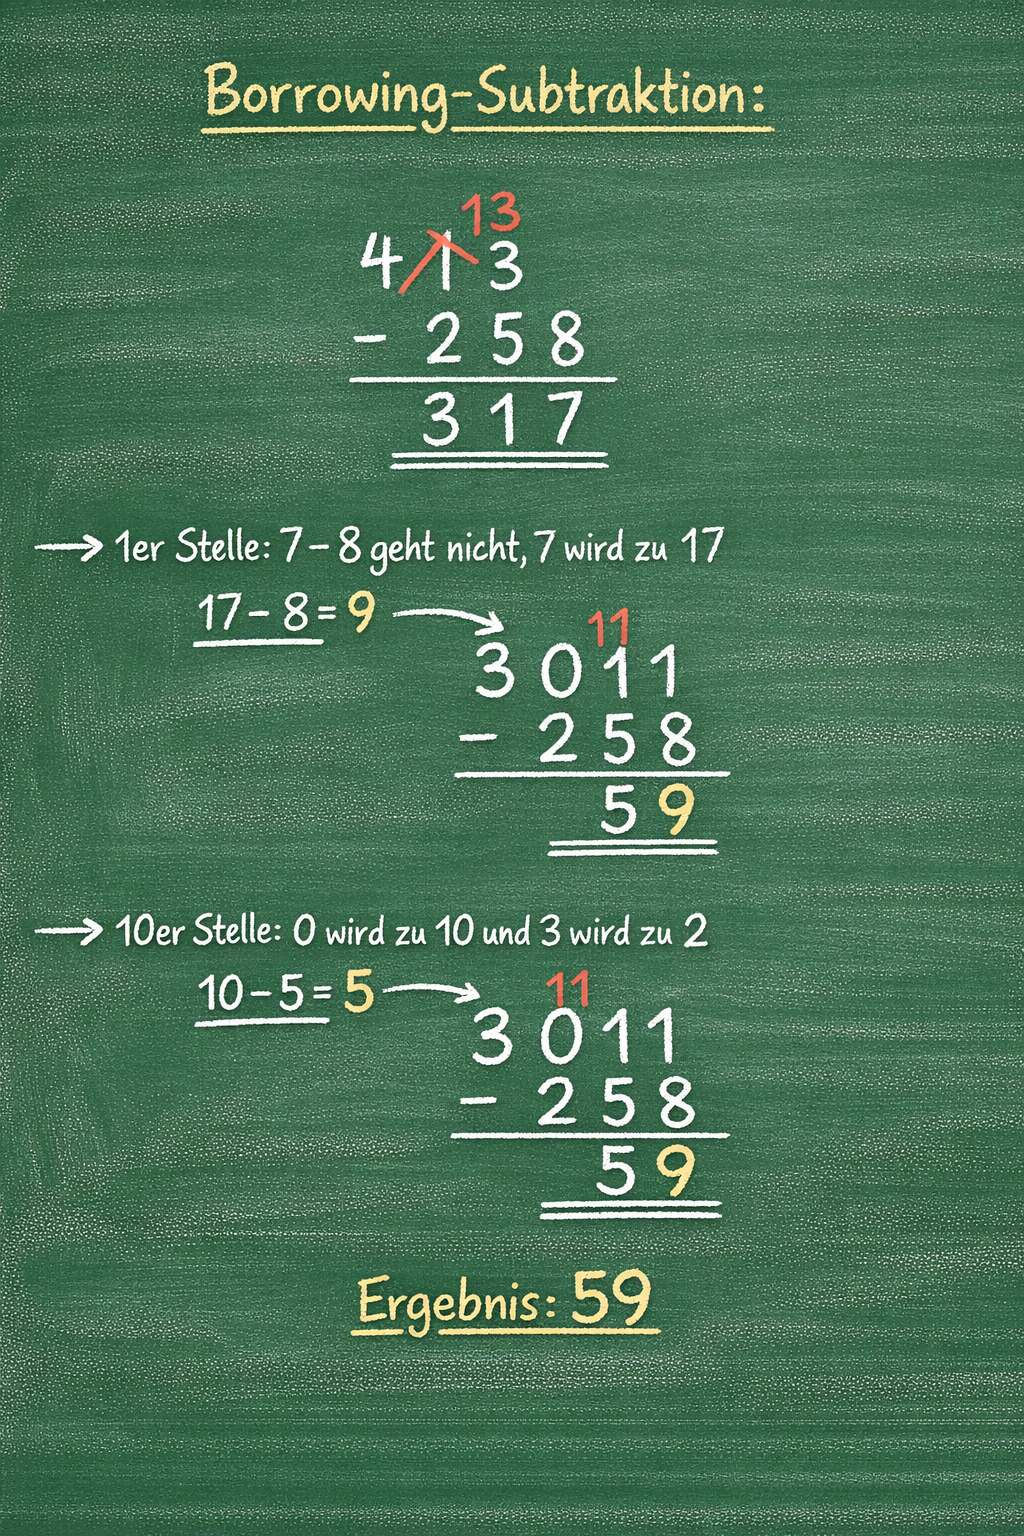 Borrowing-Subtraktion:
13
4 1 3
- 2 5 8
3 1 7
→ 1er Stelle: 7 - 8 geht nicht, 7 wird zu 17
17 - 8 = 9
11
3 0 1 1
- 2 5 8
5 9
→ 10er Stelle: 0 wird zu 10 und 3 wird zu 2
10 - 5 = 5
11
3 0 1 1
- 2 5 8
5 9
Ergebnis: 59